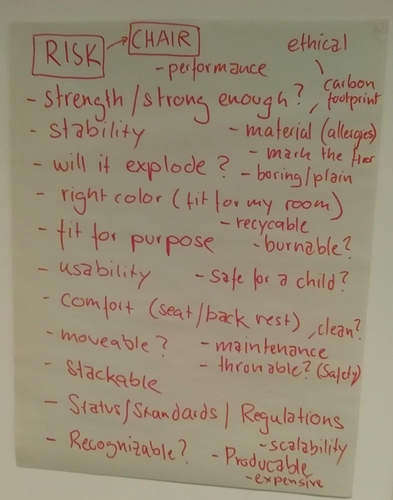 RISK → CHAIR
ethical
- performance
carbon footprint
- strength / strong enough?
- stability
- material (allerges)
- mark the floor
- will it explode?
- boring/plain
- right color (fit for my room)
- recycable
- fit for purpose
- burnable?
- usability
- safe for a child?
- comfort (seat/back rest)
, clean?
- moveable?
- maintenance
- throwable? (Safety)
- Stackable
- Status/Standards / Regulations
- scalability
- Recognizable?
- Producable
- expensive